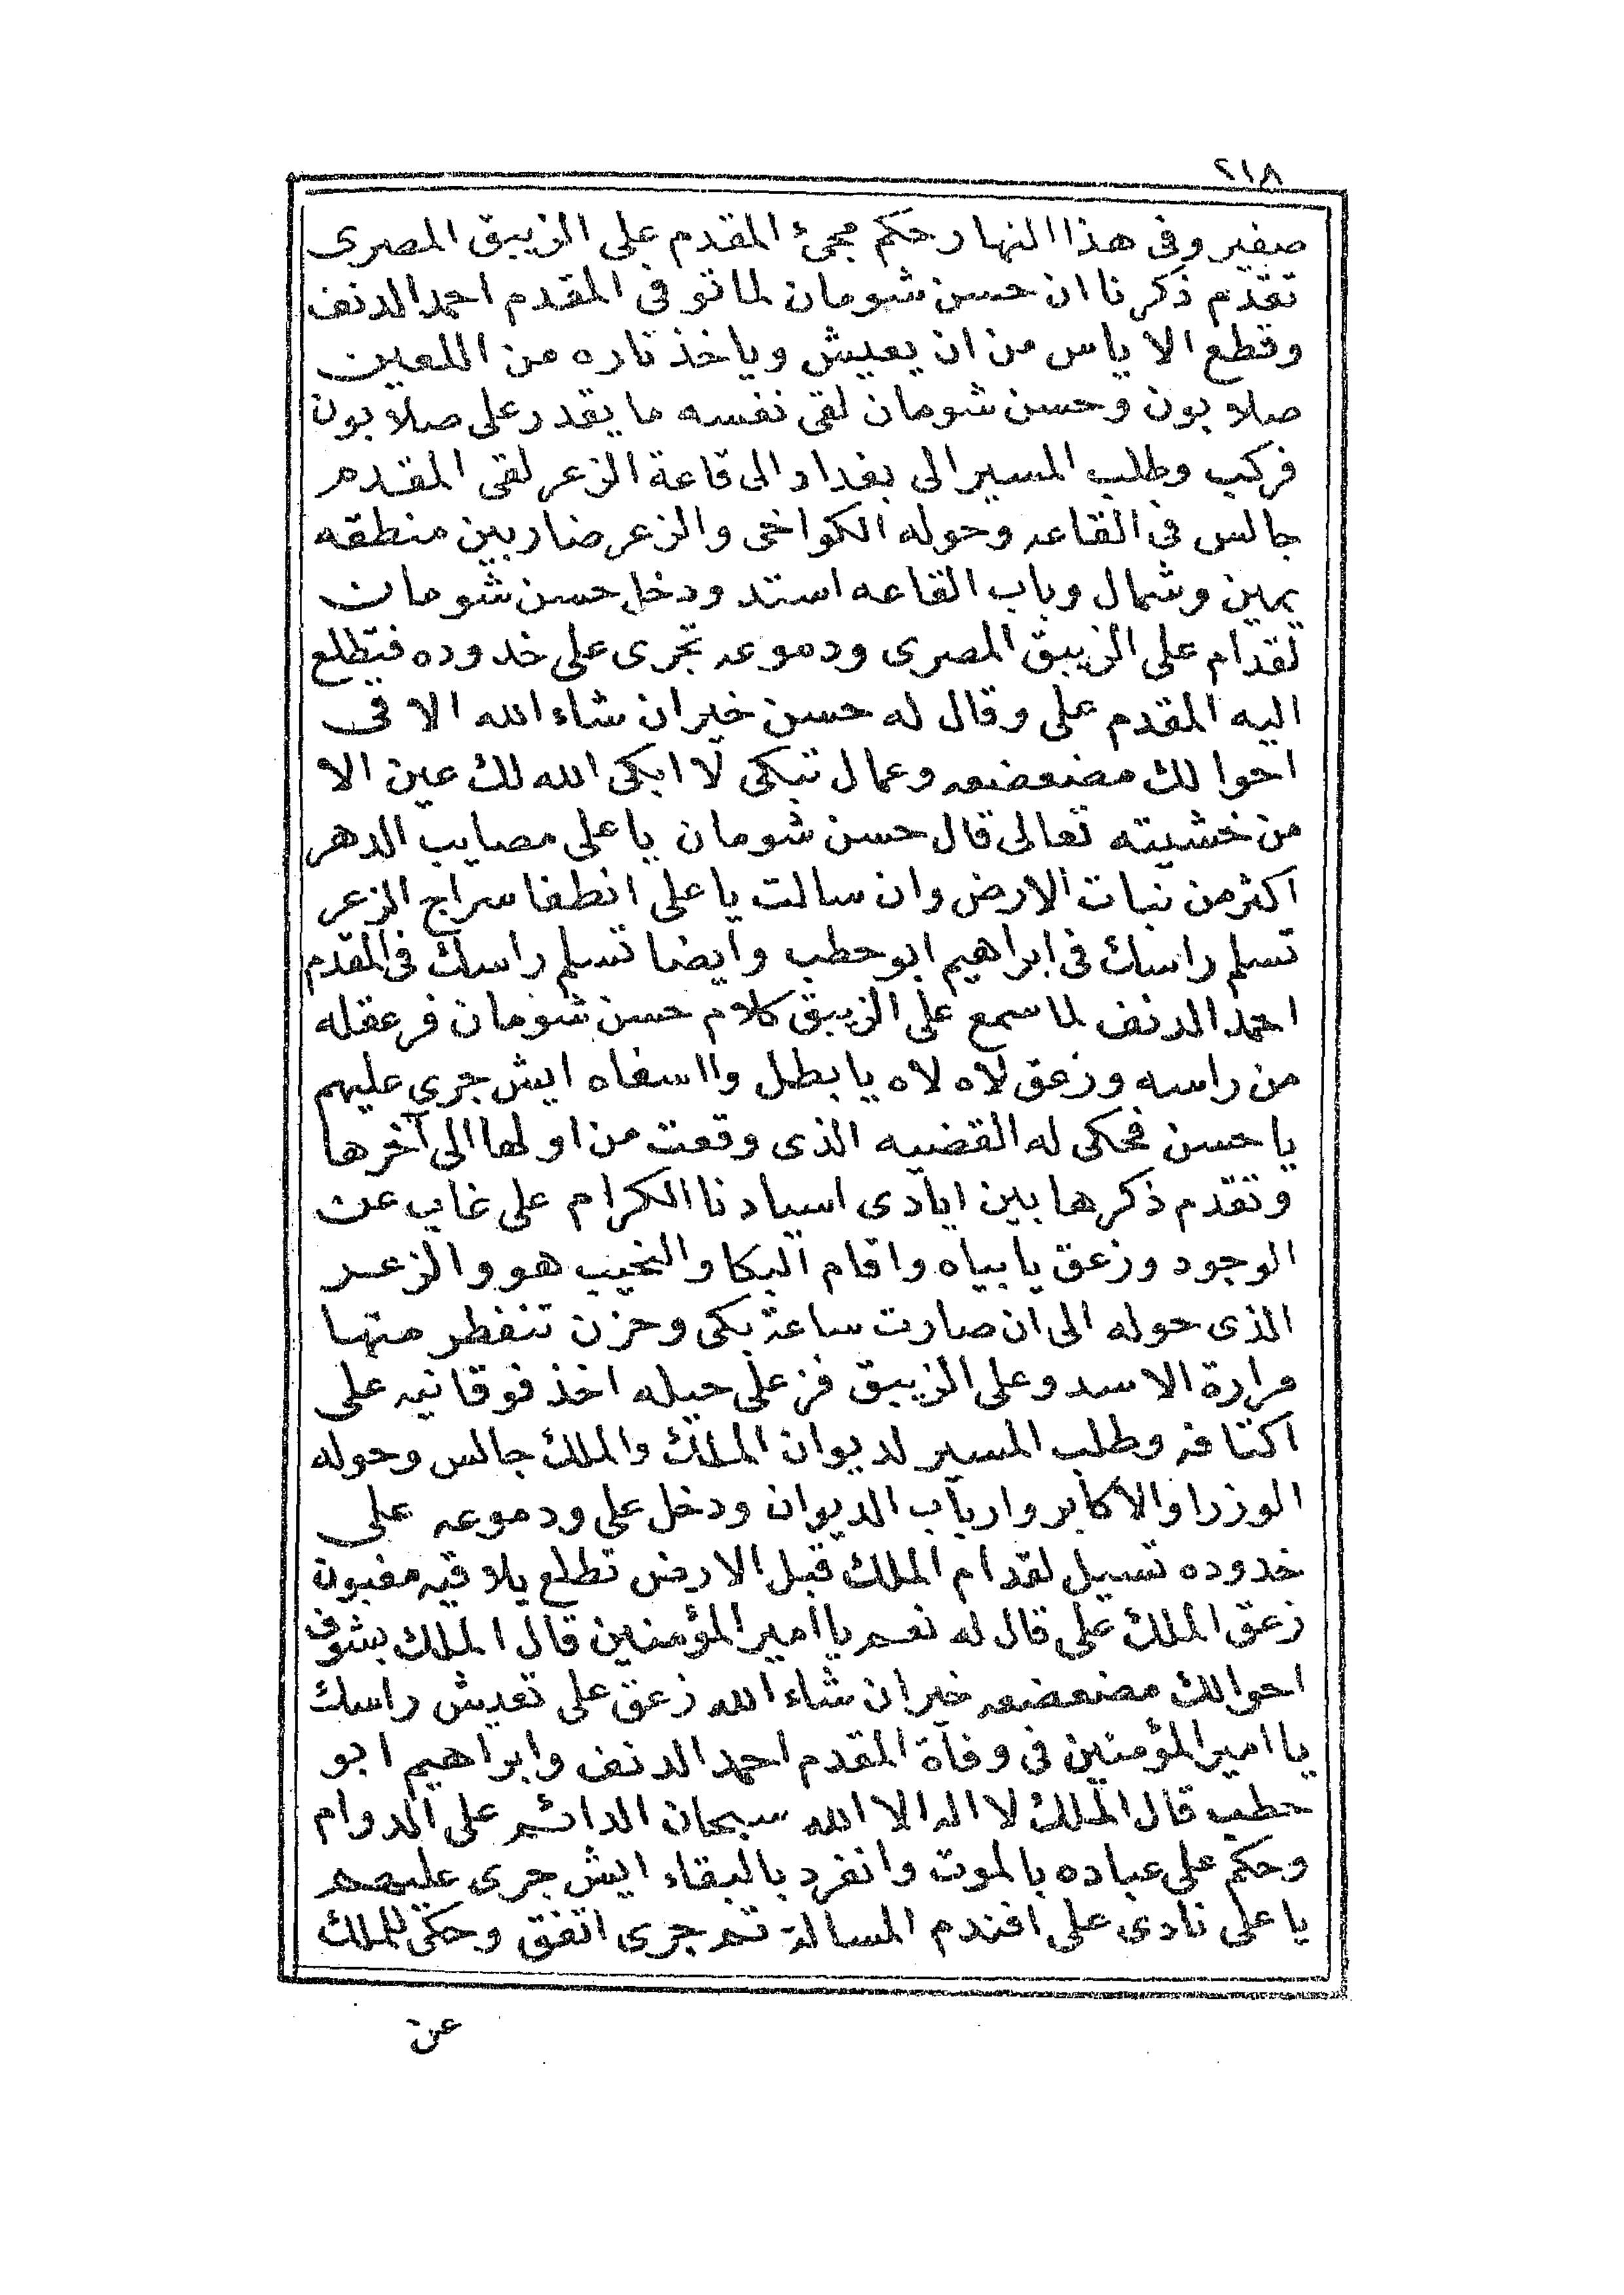 ٢١٨
صفير وفى هذا النهار حكم مجئ المقدم على الزيبق المصرى
تقدم ذكرنا ان حسن شومان لما توفى المقدم احمد الدنف
وقطع الاياس من ان يعيش وياخذ تاره من اللعين
صلابون وحسن شومان لقى نفسه ما يقدر على صلابون
فركب وطلب المسير الى بغداد الى قاعة الزعر لقى المقدم
جالس فى القاعه وحوله الكواخى والزعر ضاربين منطقه
يمين وشمال وباب القاعه استد ودخل حسن شومان
لقدام على الزيبق المصرى ودموعه تجرى على خدوده فتطلع
اليه المقدم على وقال له حسن خير ان شاء الله الا فى
احوالك مضعضعه وعمال تبكى لا ابكى الله لك عين الا
من خشيته تعالى قال حسن شومان يا على مصايب الدهر
اكثر من نبات الارض وان سالت يا على انطفا سراج الزعر
تسلم راسك فى ابراهيم ابو حطب وايضا تسلم راسك فى المقدم
احمد الدنف لما سمع على الزيبق كلام حسن شومان فر عقله
من راسه وزعق لاه لاه يا بطل وااسفاه ايش جرى عليهم
يا حسن فحكى له القضيه الذى وقعت من اولها الى آخرها
وتقدم ذكرها بين ايادى اسيادنا الكرام على غاب عن
الوجود وزعق يا بياه واقام البكا والنحيب هو والزعر
الذى حوله الى ان صارت ساعة بكى وحزن تنفطر منها
مرارة الاسد وعلى الزيبق فز على حيله اخذ فوقانيه على
اكتافه وطلب المسير لديوان الملك والملك جالس وحوله
الوزرا والاكابر وارباب الديوان ودخل على ودموعه على
خدوده تسيل لقدام الملك قبل الارض تطلع يلاقيه مغبون
زعق الملك على قال له نعم يا امير المؤمنين قال الملك بشوف
احوالك مضعضعه خير ان شاء الله زعق على تعيش راسك
يا امير المؤمنين فى وفاة المقدم احمد الدنف وابراهيم ابو
حطب قال الملك لا اله الا الله سبحان الدائم على الدوام
وحكم على عباده بالموت وانفرد بالبقاء ايش جرى عليهم
يا على نادى على افندم المسالة تم جرى اتفق وحكى للملك
عن